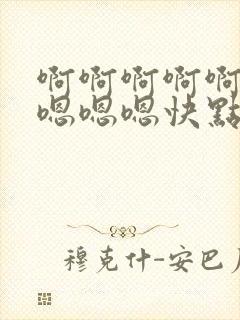 啊啊啊啊啊
嗯嗯嗯快點
穆克什-安巴